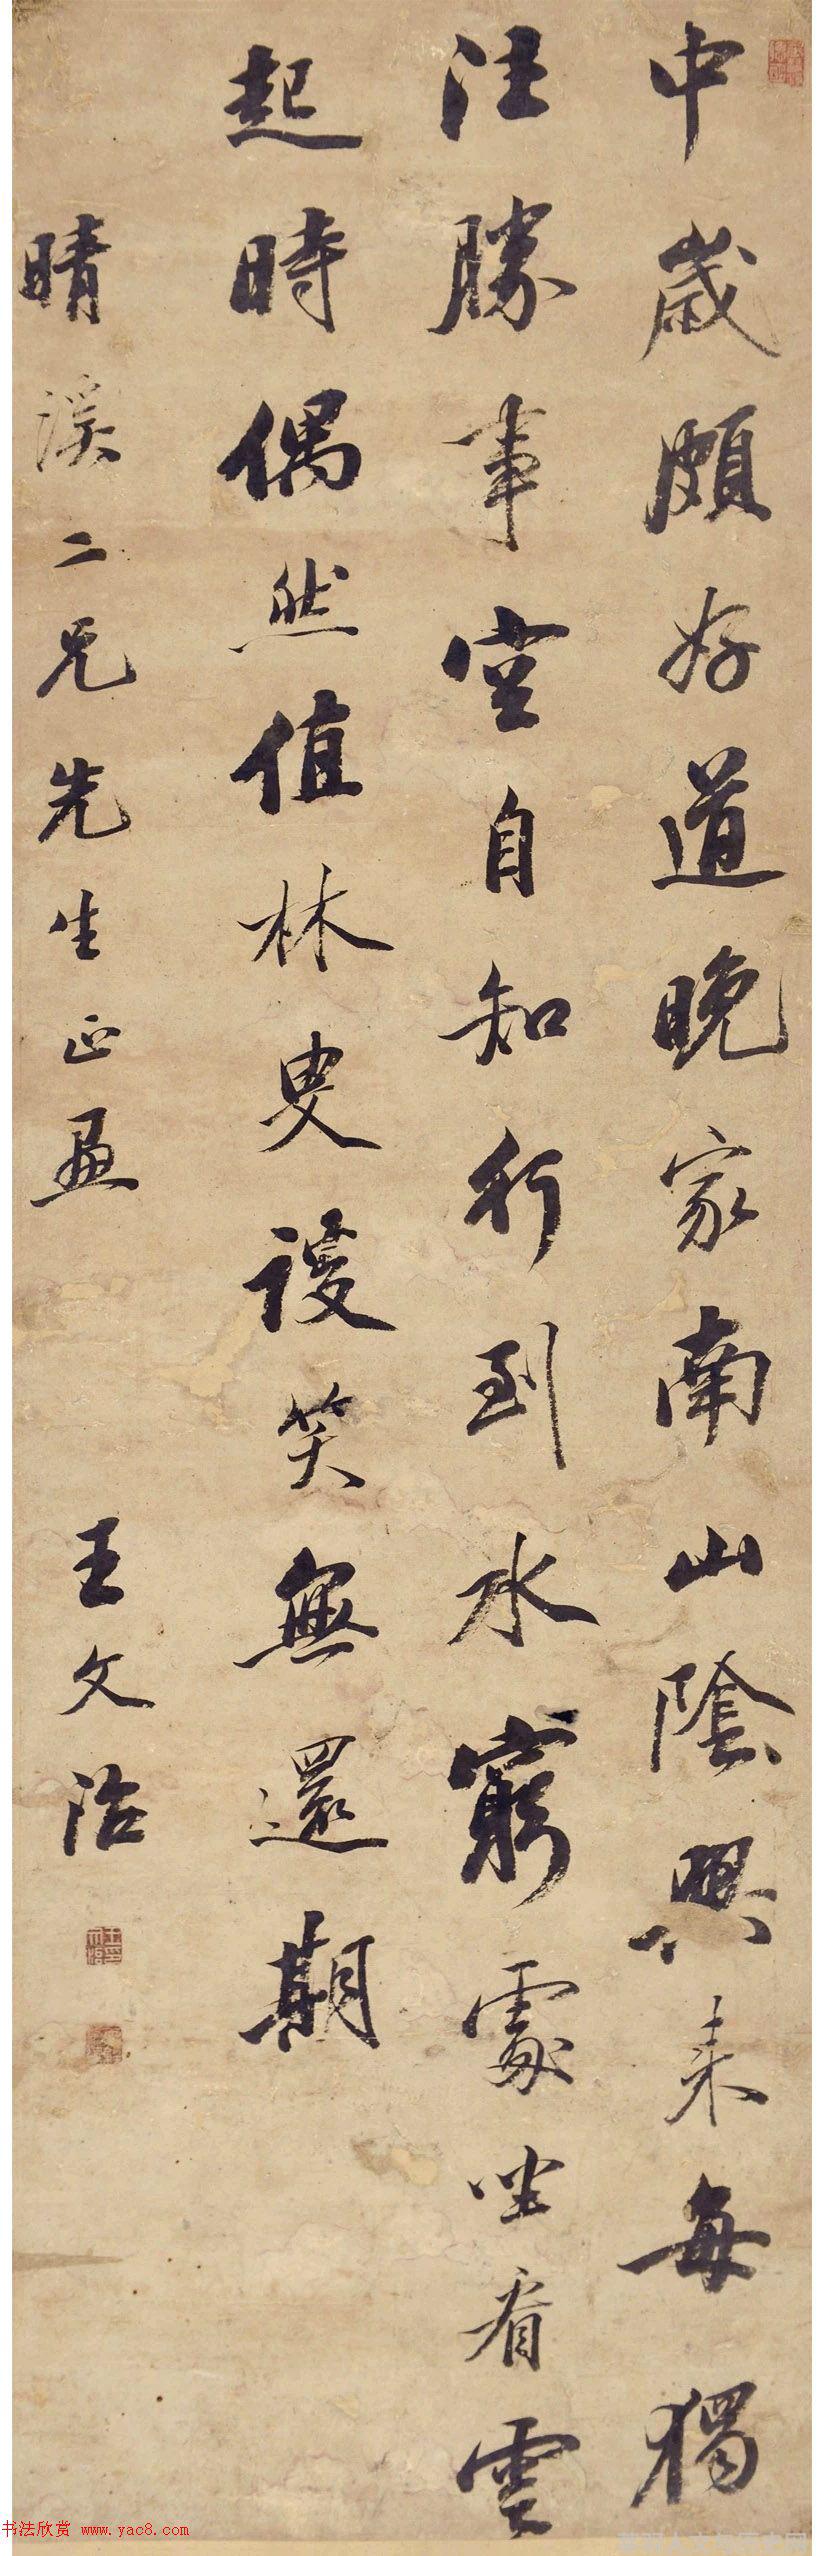 中歲頗好道晚家南山陰興來每獨
往勝事空自知行到水窮處坐看雲
起時偶然值林叟談笑無還期
晴溪二兄先生正画
王文治
书法欣赏 www.yac8.com